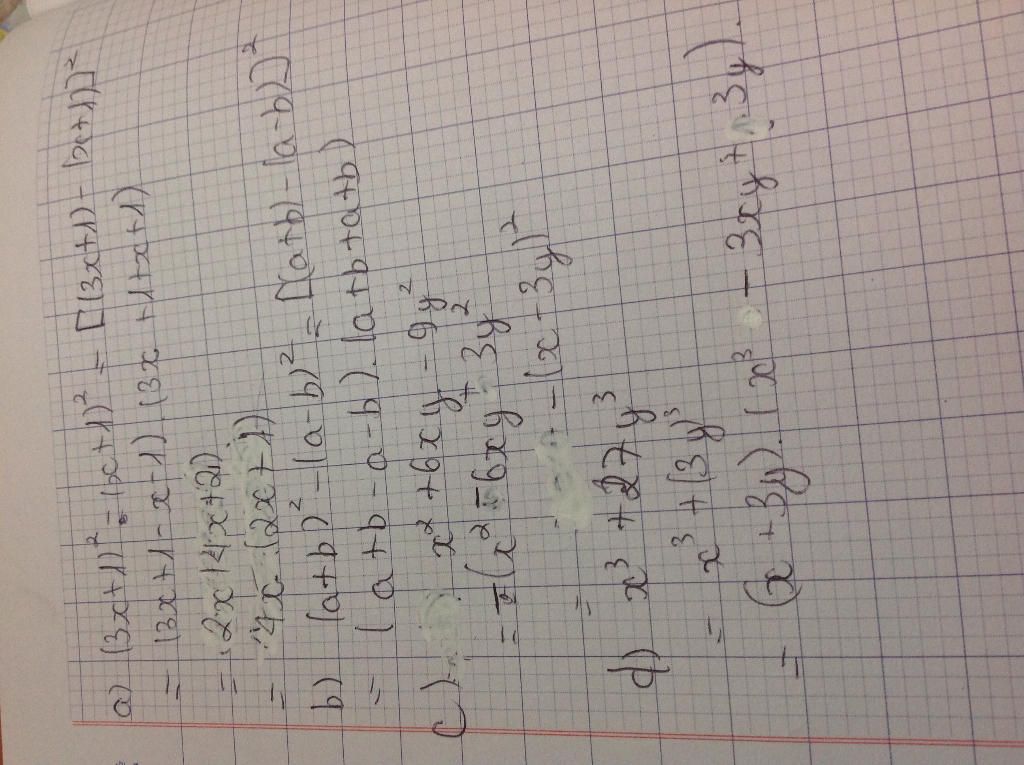 a) (3x+1)² - (x+1)² = [(3x+1) - (x+1)]²
= (3x+1-x-1).(3x+1+x+1)
= 2x.(4x+2)
= 4x.(2x+1)
b) (a+b)² - (a-b)² = [(a+b) - (a-b)]²
= (a+b-a-b).(a+b+a+b)
c) x² + 6xy - 9y²
= -(x² - 6xy + 3y²
= -(x - 3y)²
d) x³ + 27y³
= x³ + (3y)³
= (x+3y).(x³ - 3xy + 3y).